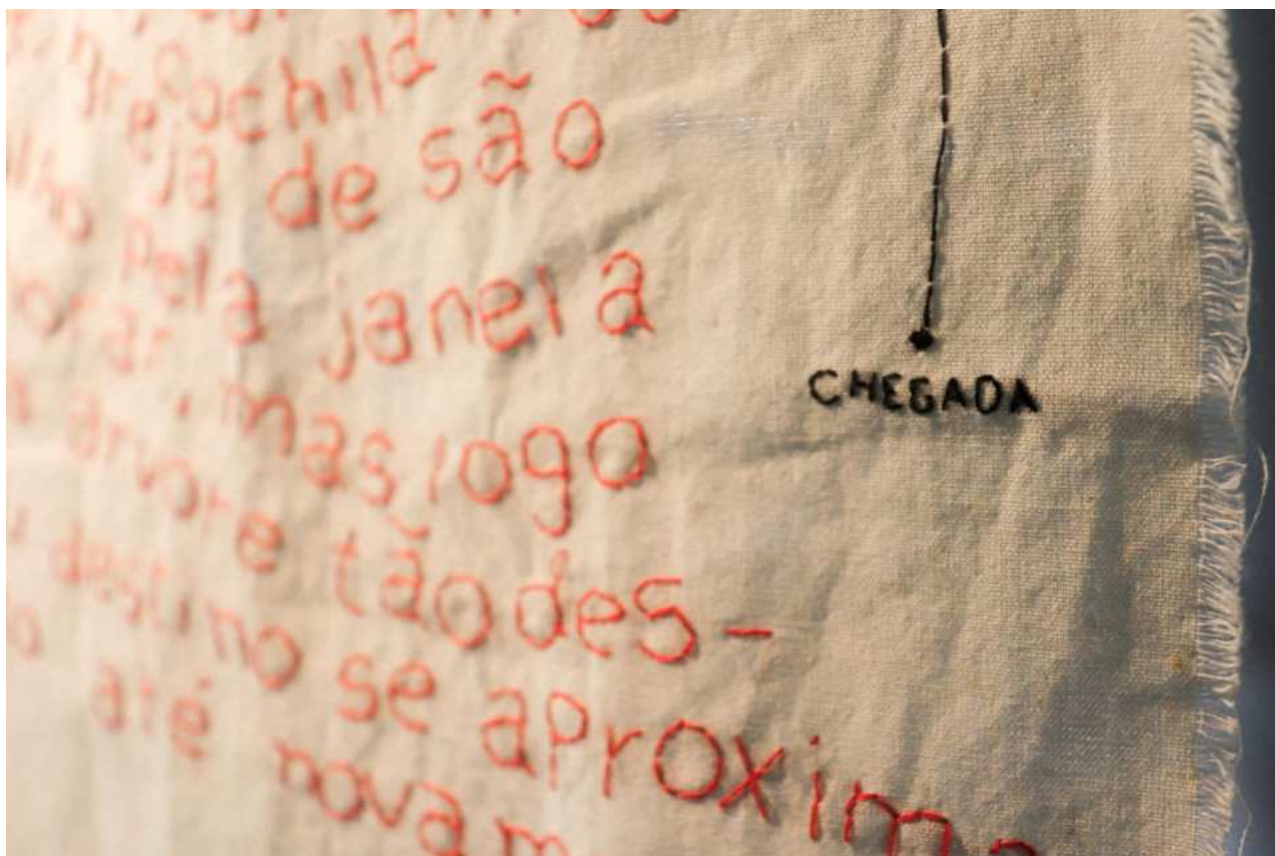 cochila
de são
pela janela
mas logo
arvore tão des-
destino se aproxima
até novam
CHEGADA